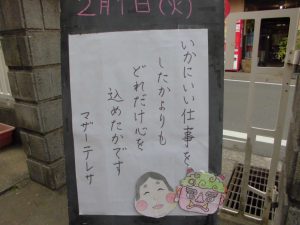 2月1日(火)
いかにいい仕事を
したかよりも
どれだけ心を
込めたかです
マザーテレサ